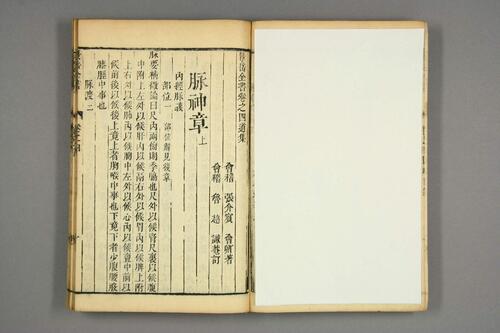 景岳全書卷之四道集
會稽 張介賓 會卿著
會稽 魯超 謙菴訂
脉神章上
內經脉義
部位一 部位解見後章
脉要精微論曰尺內兩傍則季脇也尺外以候腎尺裏以候腹
中附上左外以候肝內以候鬲右外以候胃內以候脾上附
上右外以候肺內以候胸中左外以候心內以候膻中前以
候前後以候後上竟上者胸喉中事也下竟下者少腹腰股
膝脛中事也
脉度二